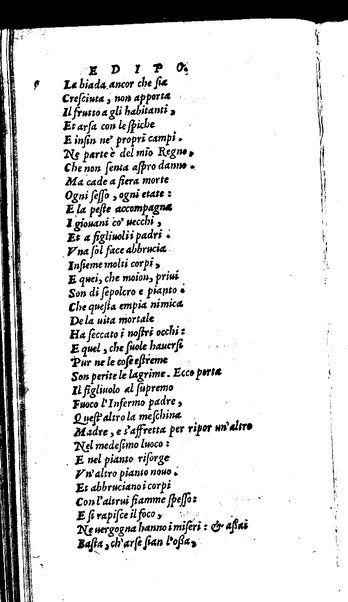 EDIPO.
La biada ancor che sia
Cresciuta, non apporta
Il frutto a gli habitanti,
Et arsa con le spiche
E insin ne' propri campi.
Ne parte è del mio Regno,
Che non senta aspro danno.
Ma cade a fiera morte
Ogni sesso, ogni etate:
E la peste accompagna
I giouani co' uecchi,
Et a figliuoli i padri.
Vna sol face abbrucia
Insieme molti corpi,
E quei, che moion, priui
Son di sepolcro e pianto.
Che questa empia nimica
De la uita mortale
Ha seccato i nostri occhi:
E quel, che suole hauersi
Pur ne le cose estreme
Son perite le lagrime. Ecco porta
Il figliuolo al supremo
Fuoco l'Infermo padre,
Quest'altro la meschina
Madre, e s'affretta per ripor un'altro
Nel medesimo luoco:
E nel pianto risorge
Vn'altro pianto nouo.
Et abbruciano i corpi
Con l'altrui fiamme spesso:
E si rapisce il foco,
Ne uergogna hanno i miseri: & assai
Basta, ch'arse sian l'ossa,